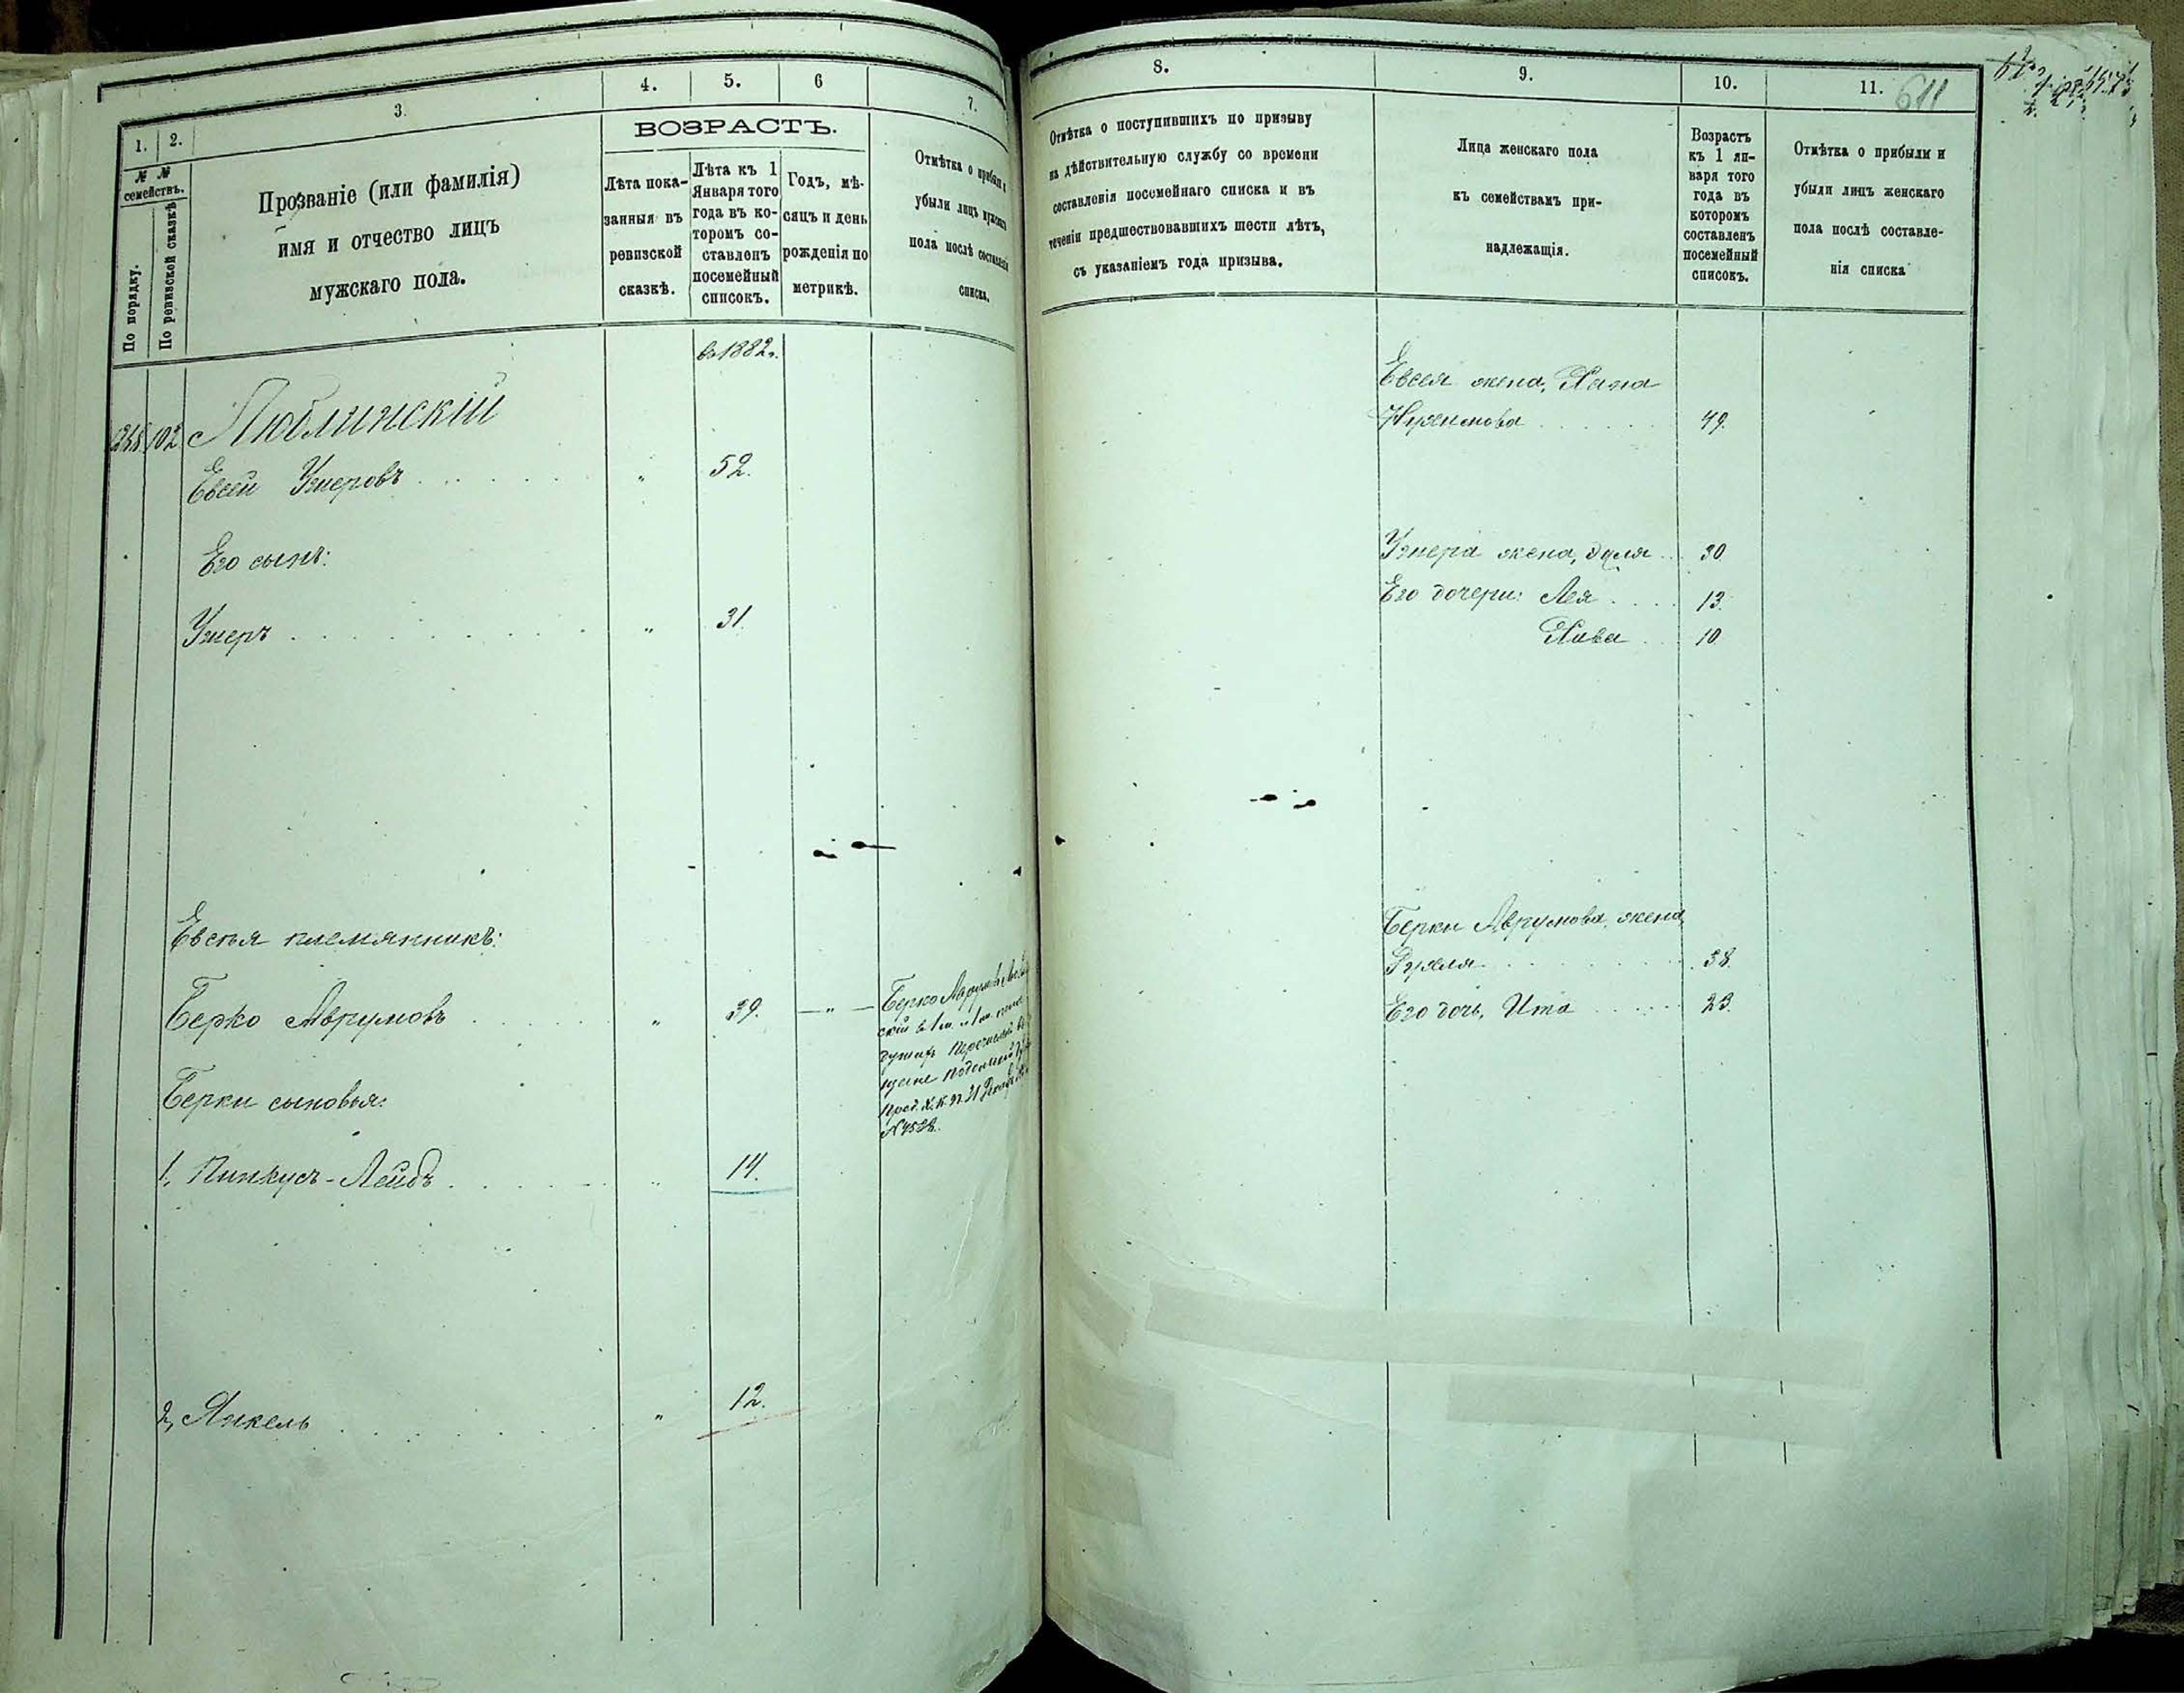 1.
2.
3.
4.
5.
6
7.
№ №
семействъ.
По порядку.
По ревизской сказкѣ
Прозваніе (или фамилія)
имя и отчество лицъ
мужскаго пола.
ВОЗРАСТЪ.
Лѣта пока-
занныя въ
ревизской
сказкѣ.
Лѣта къ 1
Января того
года въ ко-
торомъ со-
ставленъ
посемейный
списокъ.
Годъ, мѣ-
сяцъ и день
рожденія по
метрикѣ.
Отмѣтка о прибыли и
убыли лицъ мужскаго
пола послѣ составленія
списка.
въ 1882г.
102 Люблинскій
Евсей Умеровъ 52.
Его сынъ:
Умеръ 31.
Евсѣя племянникъ:
Берко Аврумовъ " 39. "
Берко
№ 4528.
Берки сыновья:
1, Пинкусъ-Лейбъ " 14.
2, Янкель " 12.
8.
9.
10.
11.
611
Отмѣтка о поступившихъ по призыву
на дѣйствительную службу со времени
составленія посемейнаго списка и въ
теченіи предшествовавшихъ шести лѣтъ,
съ указаніемъ года призыва.
Лица женскаго пола
къ семействамъ при-
надлежащія.
Возрастъ
къ 1 ян-
варя того
года въ
которомъ
составленъ
посемейный
списокъ.
Отмѣтка о прибыли и
убыли лицъ женскаго
пола послѣ составле-
нія списка
Евсея жена, Хана
49.
Умера жена, 30
Его дочери: Лея 13.
Хава 10
Берки Аврумова жена,
Рухля 38.
Его дочь, Ита 23.